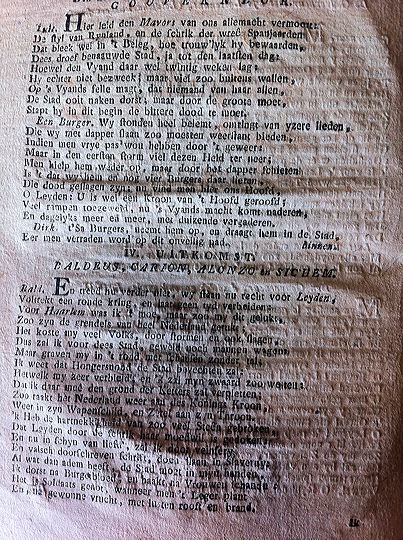 GOUVERNEUR.
Hier leid den Mavors van ons allemacht vermoort,
De styl van Rynland, en de schrik der wrede Spanjaerden
Dat bleek wel in 't Beleg, hoe trouwlyk hy bewaarden,
Dees droef benaauwde Stad, ja tot den laatsten dag:
Hoewel den Vyand daar wel twintig weken lag
Hy echter niet bezweek; maar viel zoo buiten wallen,
Op 's Vyands felle magt, die niemand van haar allen,
De Stad ooit naken dorst, maar door de groote moet,
Stapt hy in dit begin de bittere dood te moet.
Een Burger. Wy stonden heel belemt, omringt van yzere lieden,
Die wy met dapper staan zoo moesten weerstant bieden,
Indien men vrye pas won hebben door 't geweer:
Maar in den eersten storm viel dezen Held ter neer;
Men hielp hem wader op, maar door het dapper schieten
Is 't dat wy hem en nog vier Burgers daar lieten,
Die dood geslagen zyn; nu vind men hier ons Hoofd,
O Leyden! U is wel een Kroon van 't Hoofd geroofd;
Veel rampen toegewelt, nu 's Vyands macht komt naderen,
En dagelyks meer en meer, met duizende vergaderen.
Dirk. 'Sa Burgers, neemt hem op, en draagt hem in de Stad,
Eer men verraden word op dit onveilig pad. Binnen.
IV. UITKOMST.
BALDEUS, CARION, ALONZO en SICHEM.
Bald. En trekt nu verder niet; wy staan nu recht voor Leyden,
Voltrekt een ronde kring, en laat geen tyd verbeiden:
Voor Haarlem was ik 't moe, maar zoo my dit gelukt,
Zoo zyn de grendels van heel Nederland gerukt;
Het koste my veel Volks, door stormen en ook slagen,
Dus zal ik voor dees Stad geweld noch mannen wagen:
Maar graven my in 't rond met schanssen zonder tal,
Ik weet dat Hongersnood de Stad bavechten zal;
Hetwelk my zeer verblyd, en 'k zal myn zwaard zoo wetten,
Dat ik daar mede den grond der Ketters zal verpletten,
Zoo raakt het Nederland weer aan des Konings Kroon,
Weer in zyn Wapenschild, zoo zit aan zyn throon.
Ik Heb de hartnekkigheid van zoo veel Steden gebroken
Dat Leyden door de schrik haar moedwil is gedoken;
En nu in schyn van liefd', zal ik door veinsery,
En valsch doorschreven schrift, doen staan in Slaverny,
Al wat dan adem heeft; de Stad moet in myn handen,
Ik dorst na Burgerbloed; en haakt na Vrouwen schande
Het is Soldaats genot, wanneer men 't Leger plant
En, na gewonne vrucht, met lusten rooft en brand.
Ik